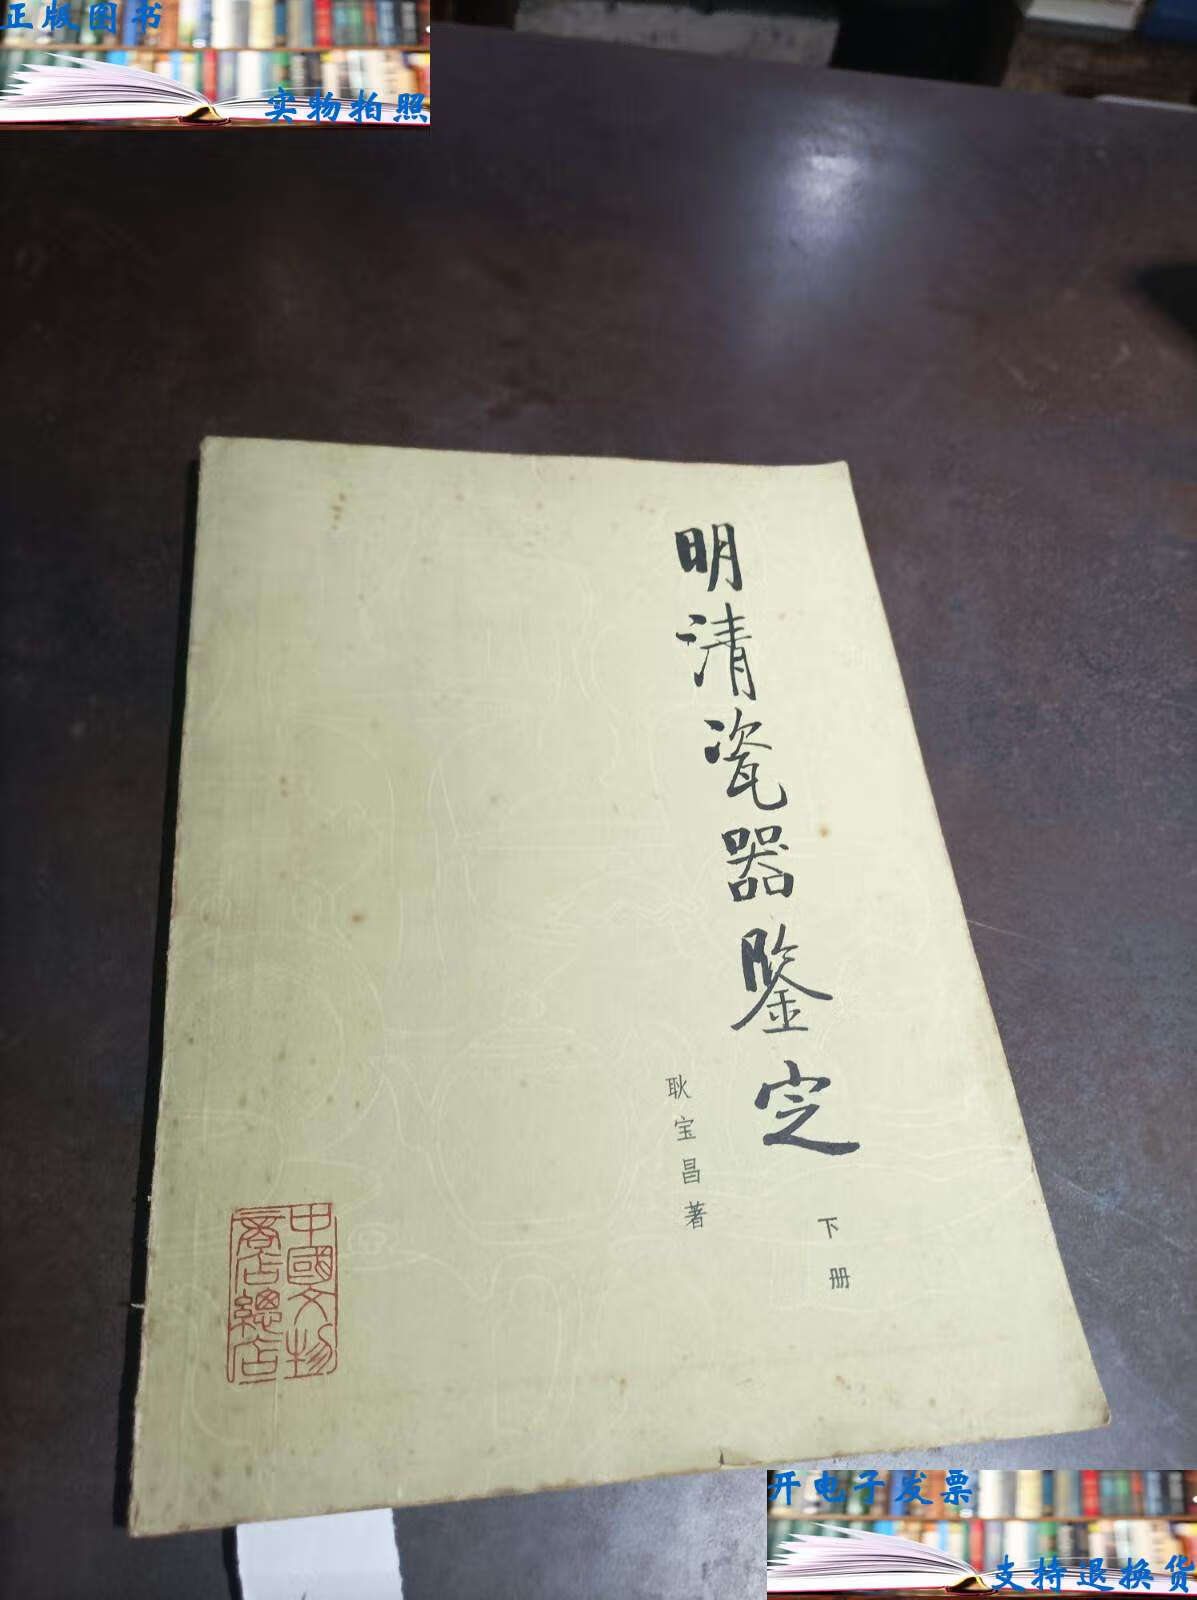 正版图书
实物拍照
明清瓷器鉴定
耿宝昌著
下册
中國文物
商店總店
开电子发票
支持退换货